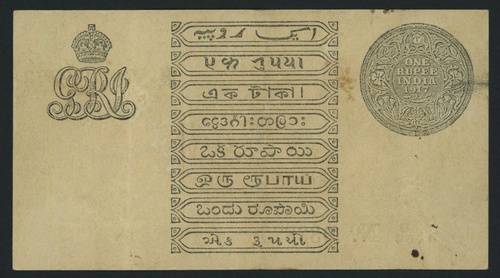 GRI
ایک روپیہ
𑂉𑂍 𑂩𑂳𑂣𑂨𑂰
এক টাকা।
ငွေဒင်္ဂါးတပြား
ఒక రూపాయి
ஒரு ரூபாய்
ಒಂದು ರೂಪಾಯಿ
એક રુપયો
ONE
RUPEE
INDIA
1917